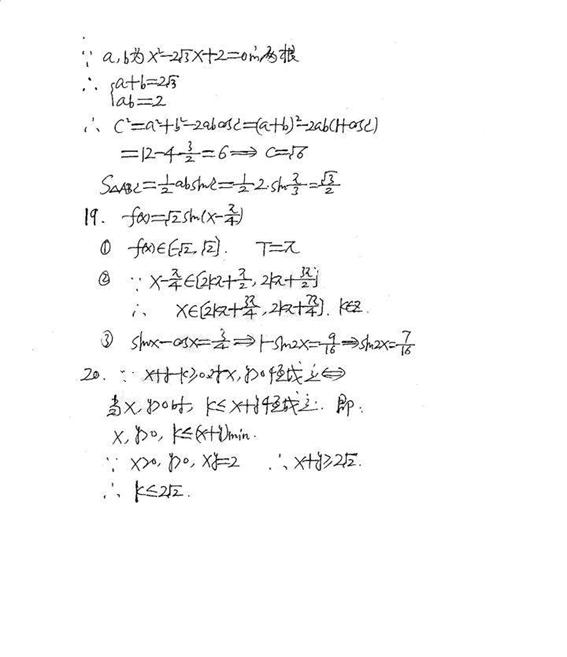 ∵ a,b为x²-2√3x+2=0的两根
∴ {a+b=2√3
ab=2
∴ c²=a²+b²-2abcosC=(a+b)²-2ab(1+cosC)
=12-4·3/2=6⟹c=√6
S△ABC=1/2absinC=1/2·2·sinπ/3=√3/2
19. f(x)=√2sin(x-π/4)
① f(x)∈[-√2,√2]. T=π
② ∵ x-π/4∈[2kπ+π/2, 2kπ+3π/2]
∴ x∈[2kπ+3π/4, 2kπ+7π/4]. k∈z.
③ sinx-cosx=3/4⟹1-sin2x=9/16⟹sin2x=7/16
20. ∵ x+y-k≥0对x,y>0恒成立⟺
当x,y>0时, k≤x+y恒成立. 即:
x,y>0, k≤(x+y)min.
∵ x>0, y>0, xy=2 ∴x+y≥2√2.
∴ k≤2√2.